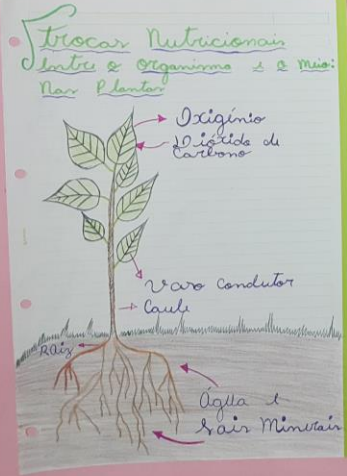 trocas Nutricionais
Entre o organismo e o meio:
Nas Plantas
Oxigénio
Dióxido de
Carbono
Vaso condutor
Caule
Raiz
Água e
Sais Minerais